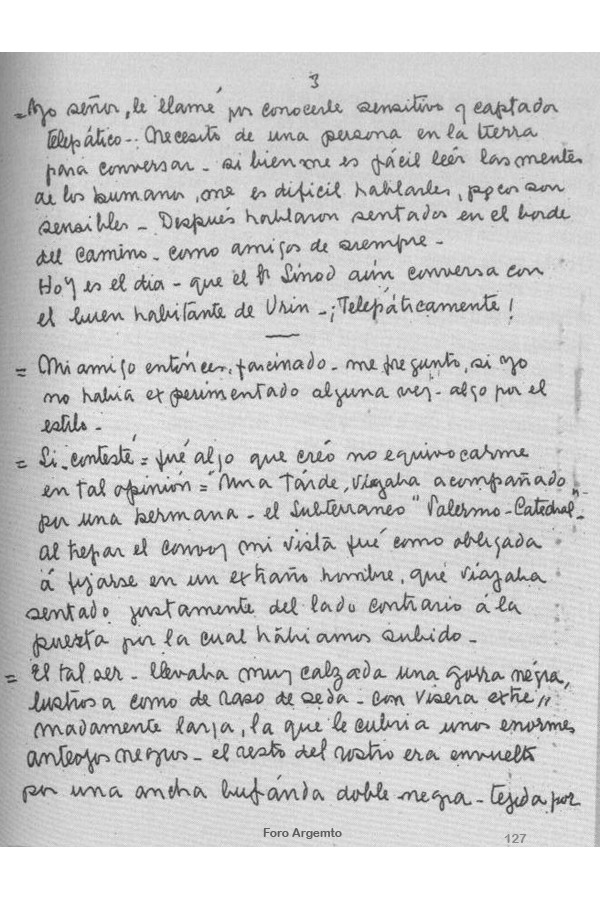 3
= Yo señor, le llamé por conocerle sensitivo y captador
telepático-. Necesito de una persona en la tierra
para conversar - si bien me es fácil leér las mentes
de los humanos, me es dificil hablarles, pocos son
sensibles - Después hablaron sentados en el borde
del camino - como amigos de siempre -
Hoy es el dia - que el Sr Sinod aún conversa con
el buen habitante de Urin - ¡Telepáticamente!
= Mi amigo entónces, fascinado - me pregunto, si yo
no habia experimentado alguna vez - algo por el
estilo -
= Si - contesté = fué álgo que creó no equivocarme
en tal opinión = Una tárde, viajaba acompañado
por una hermana - el Subterraneo "Palermo-Catedral" -
al trepar el convoy mi vistá fué como obligada
á fijarse en un extraño hombre, qué viajaba
sentado justamente del lado contrario á la
puerta por la cual hábiamos subido -
= El tal ser - llevaba muy calzada una gorra négra,
lustrosa como de raso de séda - con viséra extre„
madamente larga, la que le cubria unos enormes
anteojos negros - el resto del rostro era envuelto
por una ancha bufánda doble negra - tejida por
Foro Argemto
127